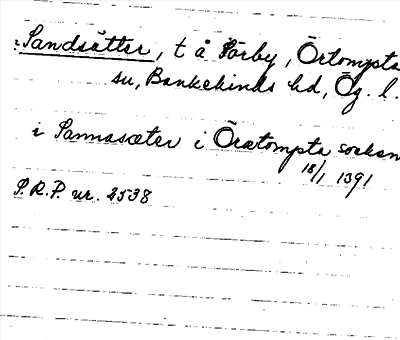 Sandsätter, t å Pörby, Örtompta
su, Bankekinds hd, Ög. l.
i Sannasæter i Örætompta socken
18/1 1391
S.R.P. nr. 2538